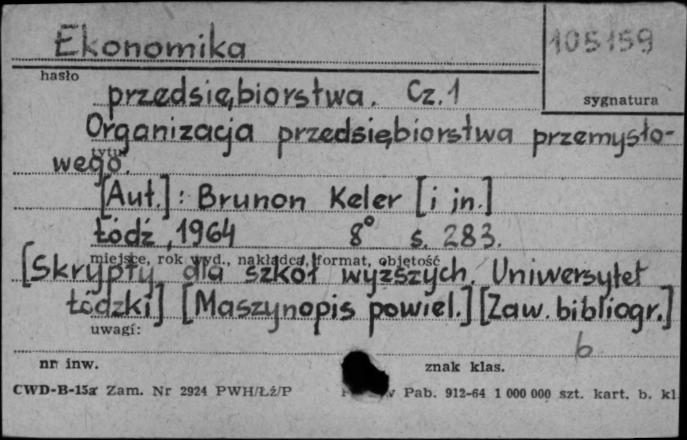 Ekonomika
105159
hasło
przedsiębiorstwa. Cz. 1
sygnatura
Organizacja przedsiębiorstwa przemysło-
wego.
tytuł
[Aut.]: Brunon Keler [i in.]
Łódź, 1964 8° s. 283.
miejsce, rok wyd., nakładca, format, objętość
[Skrypty dla szkół wyższych. Uniwersytet
Łódzki] [Maszynopis powiel.] [Zaw. bibliogr.]
uwagi:
b
nr inw.
znak klas.
CWD-B-15a Zam. Nr 2924 PWH/Łż/P Pab. 912-64 1 000 000 szt. kart. b. kl